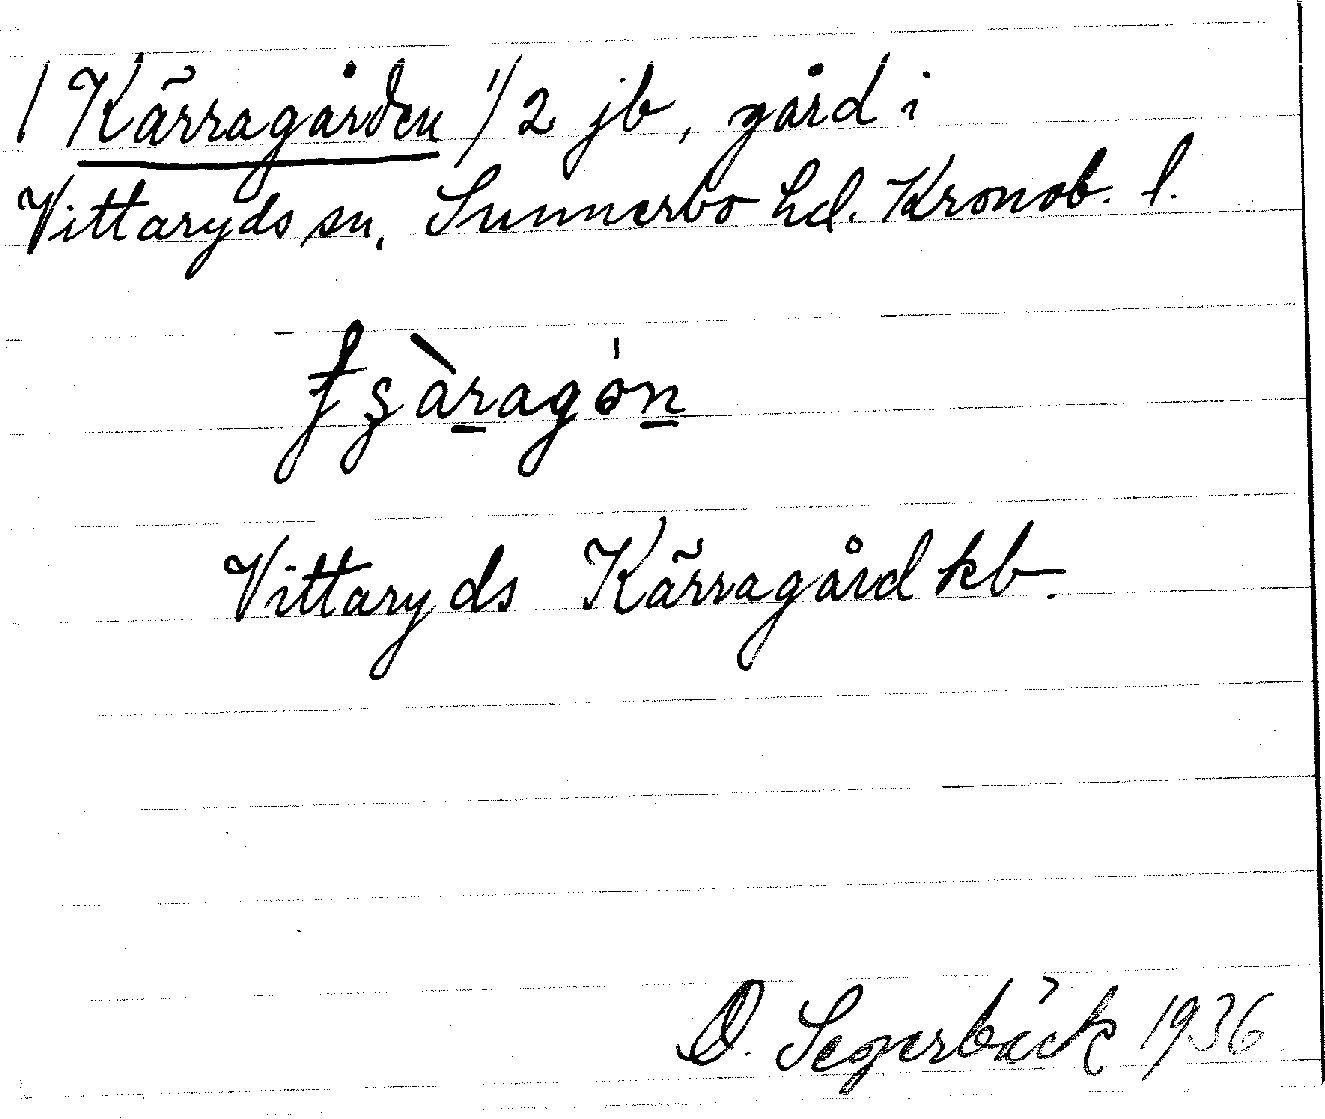 / Kärragården 1/2 jb, gård i
Vittaryds sn, Sunnerbo hd. Kronob. l.
Vittaryds Kärragård kb.
O. Segerbäck 1936